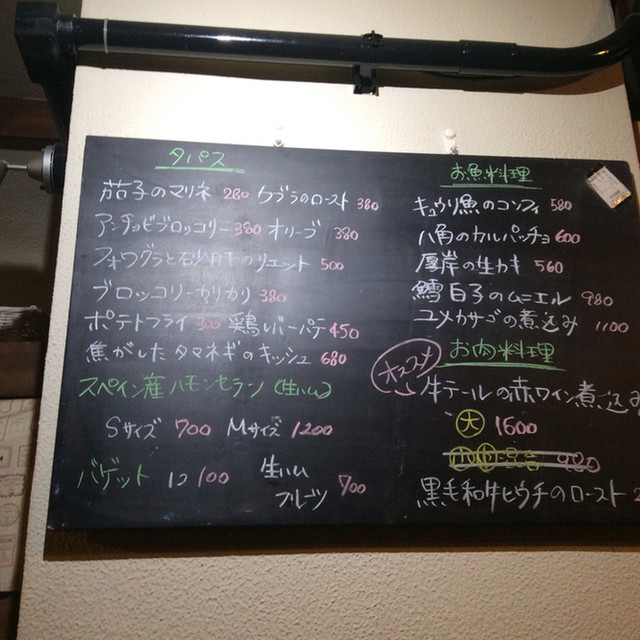 タパス
茄子のマリネ 280 ウズラのロースト 380
アンチョビブロッコリー 380 オリーブ 380
フォワグラと砂肝のリエット 500
ブロッコリーカリカリ 380
ポテトフライ 300 鶏レバーパテ 450
焦がしタマネギのキッシュ 680
スペイン産ハモンセラノ (生ハム)
Sサイズ 700 Mサイズ 1200
バゲット 1コ 100 生ハム
フルーツ 700
お魚料理
キュウリ魚のコンフィ 580
八角のカルパッチョ 600
厚岸の生カキ 560
鱈白子のムニエル 980
ユメカサゴの煮込み 1100
お肉料理
オススメ
牛テールの赤ワイン煮込み
大 1600
黒毛和牛ヒウチのロースト